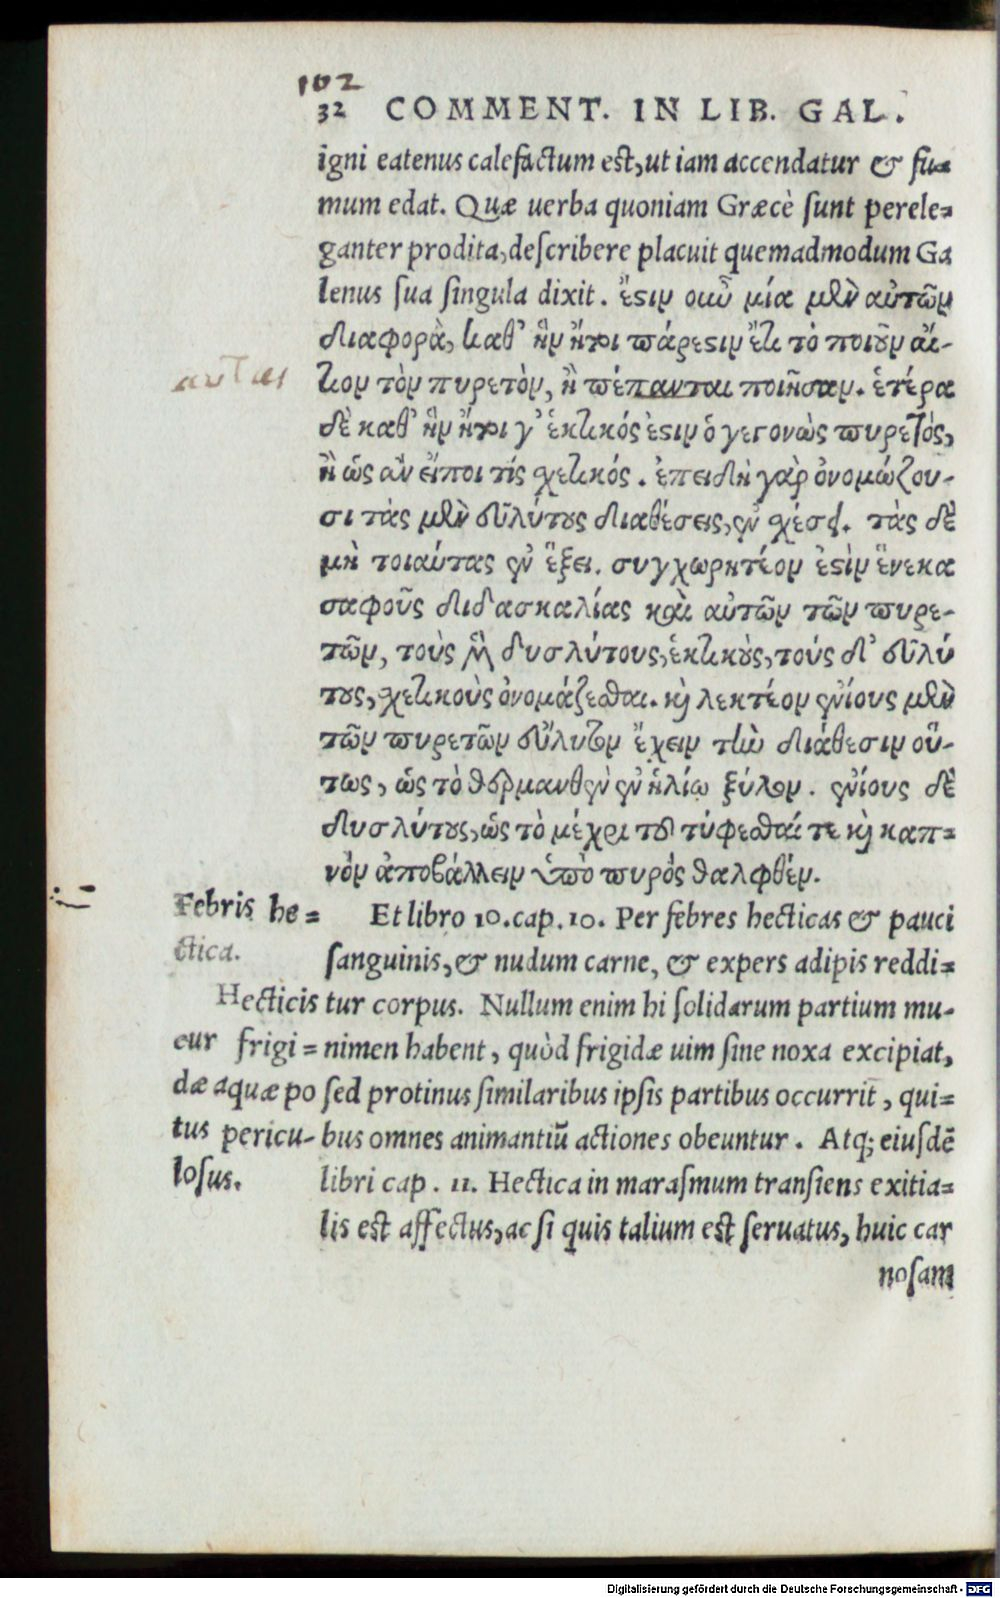 102
32 COMMENT. IN LIB. GAL.
igni eatenus calefactum est, ut iam accendatur & fu-
mum edat. Quæ uerba quoniam Græcè sunt perele=
ganter prodita, describere placuit quemadmodum Ga
lenus sua singula dixit. ἔστιν οὖν μία μὲν αὐτῶν
διαφορὰ, καθ' ἣν ἤτοι πάρεστιν ἔτι τὸ ποιοῦν αἴ-
τιον τὸν πυρετὸν, ἢ πέπαυται ποιῆσαν. ἑτέρα
δὲ καθ' ἣν ἤτοι γ' ἑκτικός ἐστιν ὁ γεγονὼς πυρετὸς,
ἢ ὡς ἂν εἴποι τίς σχετικός. ἐπειδὴ γὰρ ὀνομώζου-
σι τὰς μὲν εὐλύτους διαθέσεις, ἐν σχέσει. τὰς δὲ
μὴ τοιαύτας ἐν ἕξει. συγχωρητέον ἐστὶν ἕνεκα
σαφοῦς διδασκαλίας καὶ αὐτῶν τῶν πυρε-
τῶν, τοὺς μὲν δυσλύτους, ἑκτικοὺς, τούς δ' εὐλύ
τους, σχετικοὺς ὀνομάζεσθαι. καὶ λεκτέον ἐνίους μὲν
τῶν πυρετῶν εὔλυτον ἔχειν τὴν διάθεσιν οὕ-
τως, ὡς τὸ θερμανθὲν ἐν ἡλίῳ ξύλον. ἐνίους δὲ
δυσλύτους, ὡς τὸ μέχρι τοῦ τύφεσθαί τε καὶ καπ=
νὸν ἀποβάλλειν ὑπὸ πυρὸς θαλφθέν.
αυτας
Et libro 10. cap. 10. Per febres hecticas & pauci
sanguinis, & nudum carne, & expers adipis reddi=
tur corpus. Nullum enim hi solidarum partium mu-
nimen habent, quòd frigidæ uim sine noxa excipiat,
sed protinus similaribus ipsis partibus occurrit, qui=
bus omnes animantiū actiones obeuntur. Atq; eiusdē
libri cap. 11. Hectica in marasmum transiens exitia=
lis est affectus, ac si quis talium est seruatus, huic car
nosam
Febris he=
ctica.
Hecticis
cur frigi=
dæ aquæ po
tus pericu-
losus.
Digitalisierung gefördert durch die Deutsche Forschungsgemeinschaft - DFG